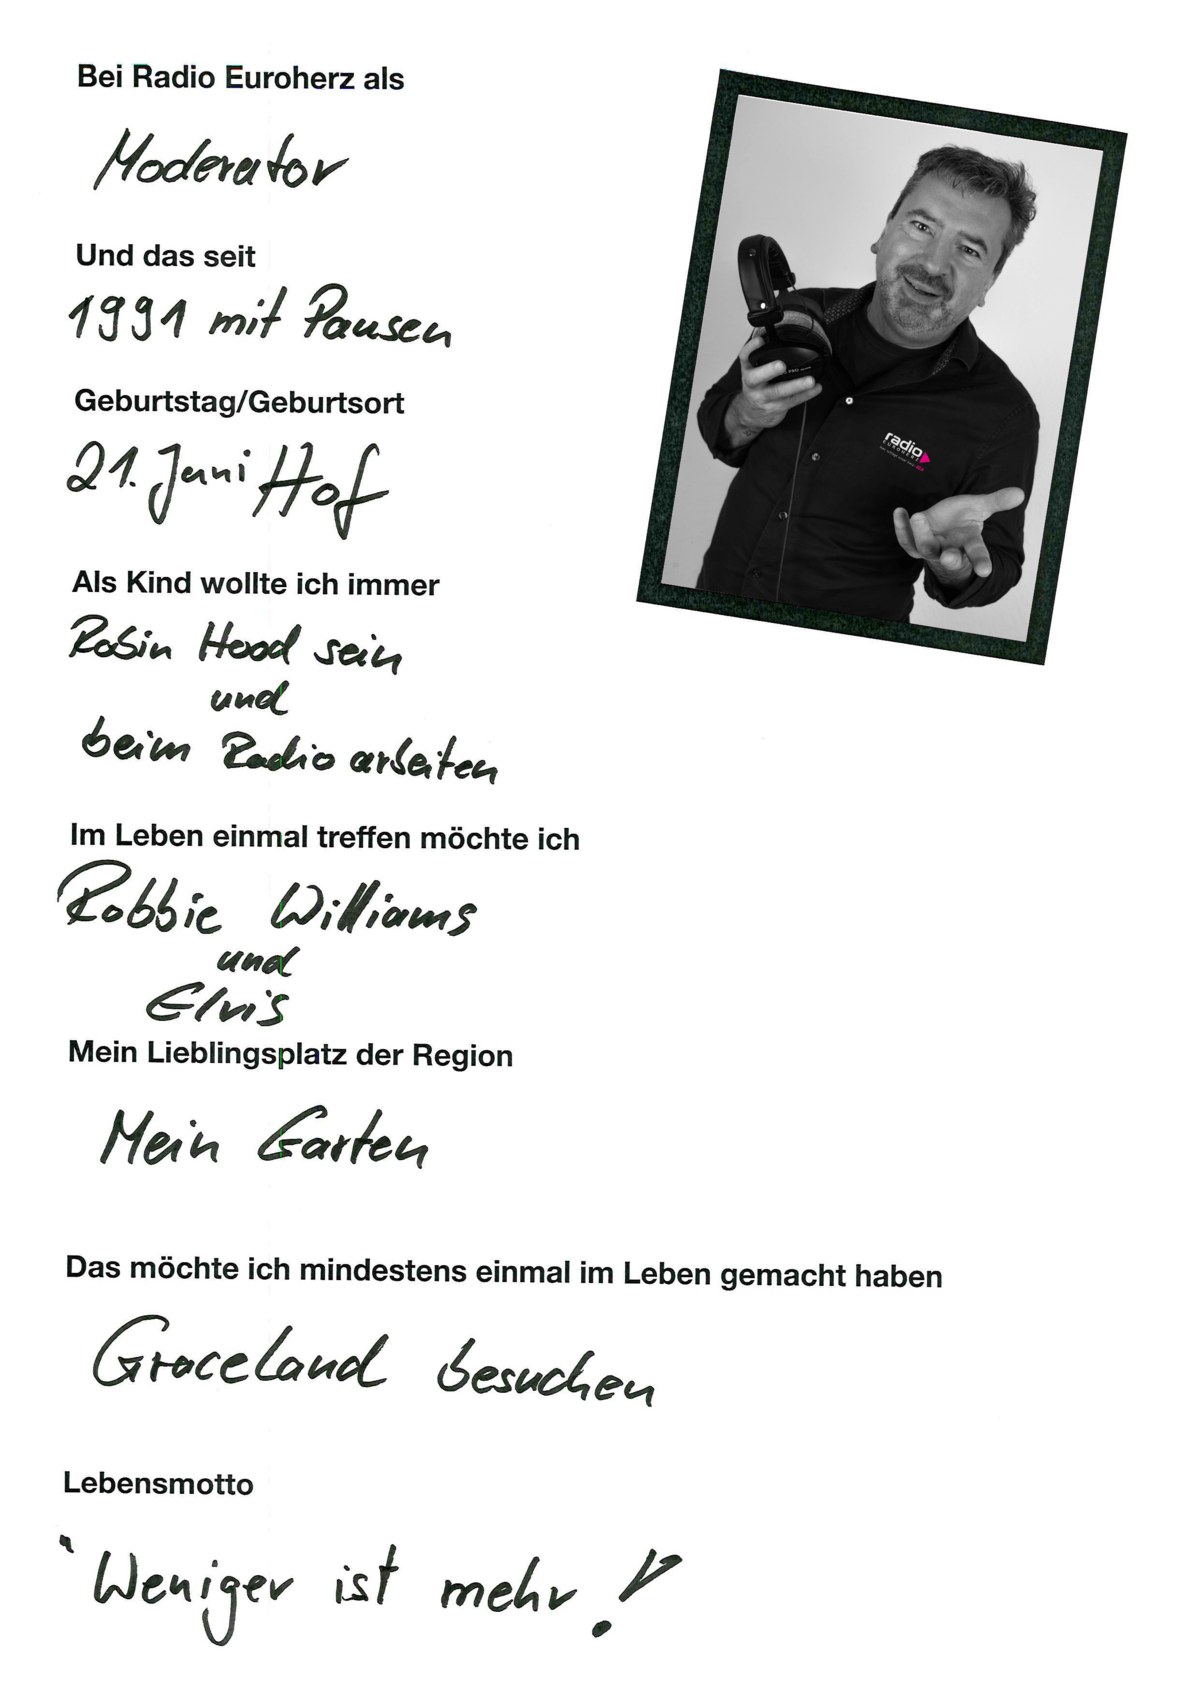 Bei Radio Euroherz als
Moderator
Und das seit
1991 mit Pausen
Geburtstag/Geburtsort
21. Juni Hof
Als Kind wollte ich immer
Robin Hood sein
und
beim Radio arbeiten
Im Leben einmal treffen möchte ich
Robbie Williams
und
Elvis
Mein Lieblingsplatz der Region
Mein Garten
Das möchte ich mindestens einmal im Leben gemacht haben
Graceland besuchen
Lebensmotto
"Weniger ist mehr!
radio
EUROHERZ